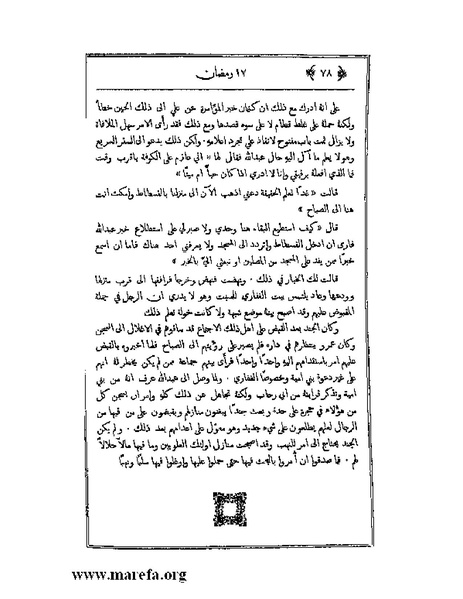 ﴿ ٧٨ ﴾ ١٧ رمضان
على انهُ ادرك مع ذلك ان كتمان خبر المؤامرة عن علي الى ذلك الحين خطأ
ولكنهُ حملهُ على غلط قطام لا على سوء قصدها ومع ذلك فقد رأى الامر سهل الملافاة
ولا يزال ثمت باب مفتوح لانقاذ علي بمجرد اعلامهِ . ولكن ذلك يدعو الى السفر السريع
وهو لا يعلم ما آل اليهِ حال عبدالله فقال لها « اني عازم على الكوفة باقرب وقت
فما الذي افعلهُ برفيقي وانا لا ادري اذا كان حيًّا ام ميتًا »
قالت « غدًا نعلم الحقيقة دعني اذهب الآن الى منزلنا بالفسطاط وامكث انت
هنا الى الصباح »
قال « كيف استطيع البقاء هنا وحدي ولا صبر لي على استطلاع خبر عبدالله
فارى ان ادخل الفسطاط واتردد الى المسجد ولا يعرفني احد هناك فاما ان اسمع
خبرًا ممن يفد على المسجد من المصلين او تبعثي اليَّ بالخبر »
قالت لك الخيار في ذلك . ونهضت فنهض وخرجا فرافقها الى قرب منزلها
وودعها وعاد يلتمس بيت الغفاري للمبيت وهو لا يدري ان الرجل في جملة
المقبوض عليهم وقد اصبح بيتهُ موضع شبهة ولا كانت خولة تعلم ذلك
وكان الجند بعد القبض على اهل ذلك الاجتماع قد ساقوهم في الاغلال الى السجن
وكان عمرو ينتظرهم في داره فلم يصبر على رؤيتهم الى الصباح فلما اخبروه بالقبض
عليهم امر باستقدامهم اليهِ واحدًا واحدًا فرأى بينهم جماعة ممن لم يكن يخطر لهُ انهم
على غير دعوة بني امية وخصوصًا الغفاري . ولما وصل الى عبدالله عرف انهُ من بني
امية وتذكر قرابتهُ من ابي رحاب ولكنهُ تجاهل عن ذلك كلهِ وامر ان يسجن كل
من هؤلاء في حجرة على حدة وبعث جندًا يبغتون منازلهم ويقبضون على من فيها من
الرجال لعلهم يطلعون على شيء جديد وهو معوّل على اعدامهم بعد ذلك . ولم يكن
الجند يحتاج الى امر للنهب وقد اصبحت منازل اولئك العلويين وما فيها مالاً حلالاً
لهم . فما صدقوا ان أُمروا بالبحث فيها حتى حملوا عليها واوغلوا فيها سلبًا ونهبًا
www.marefa.org